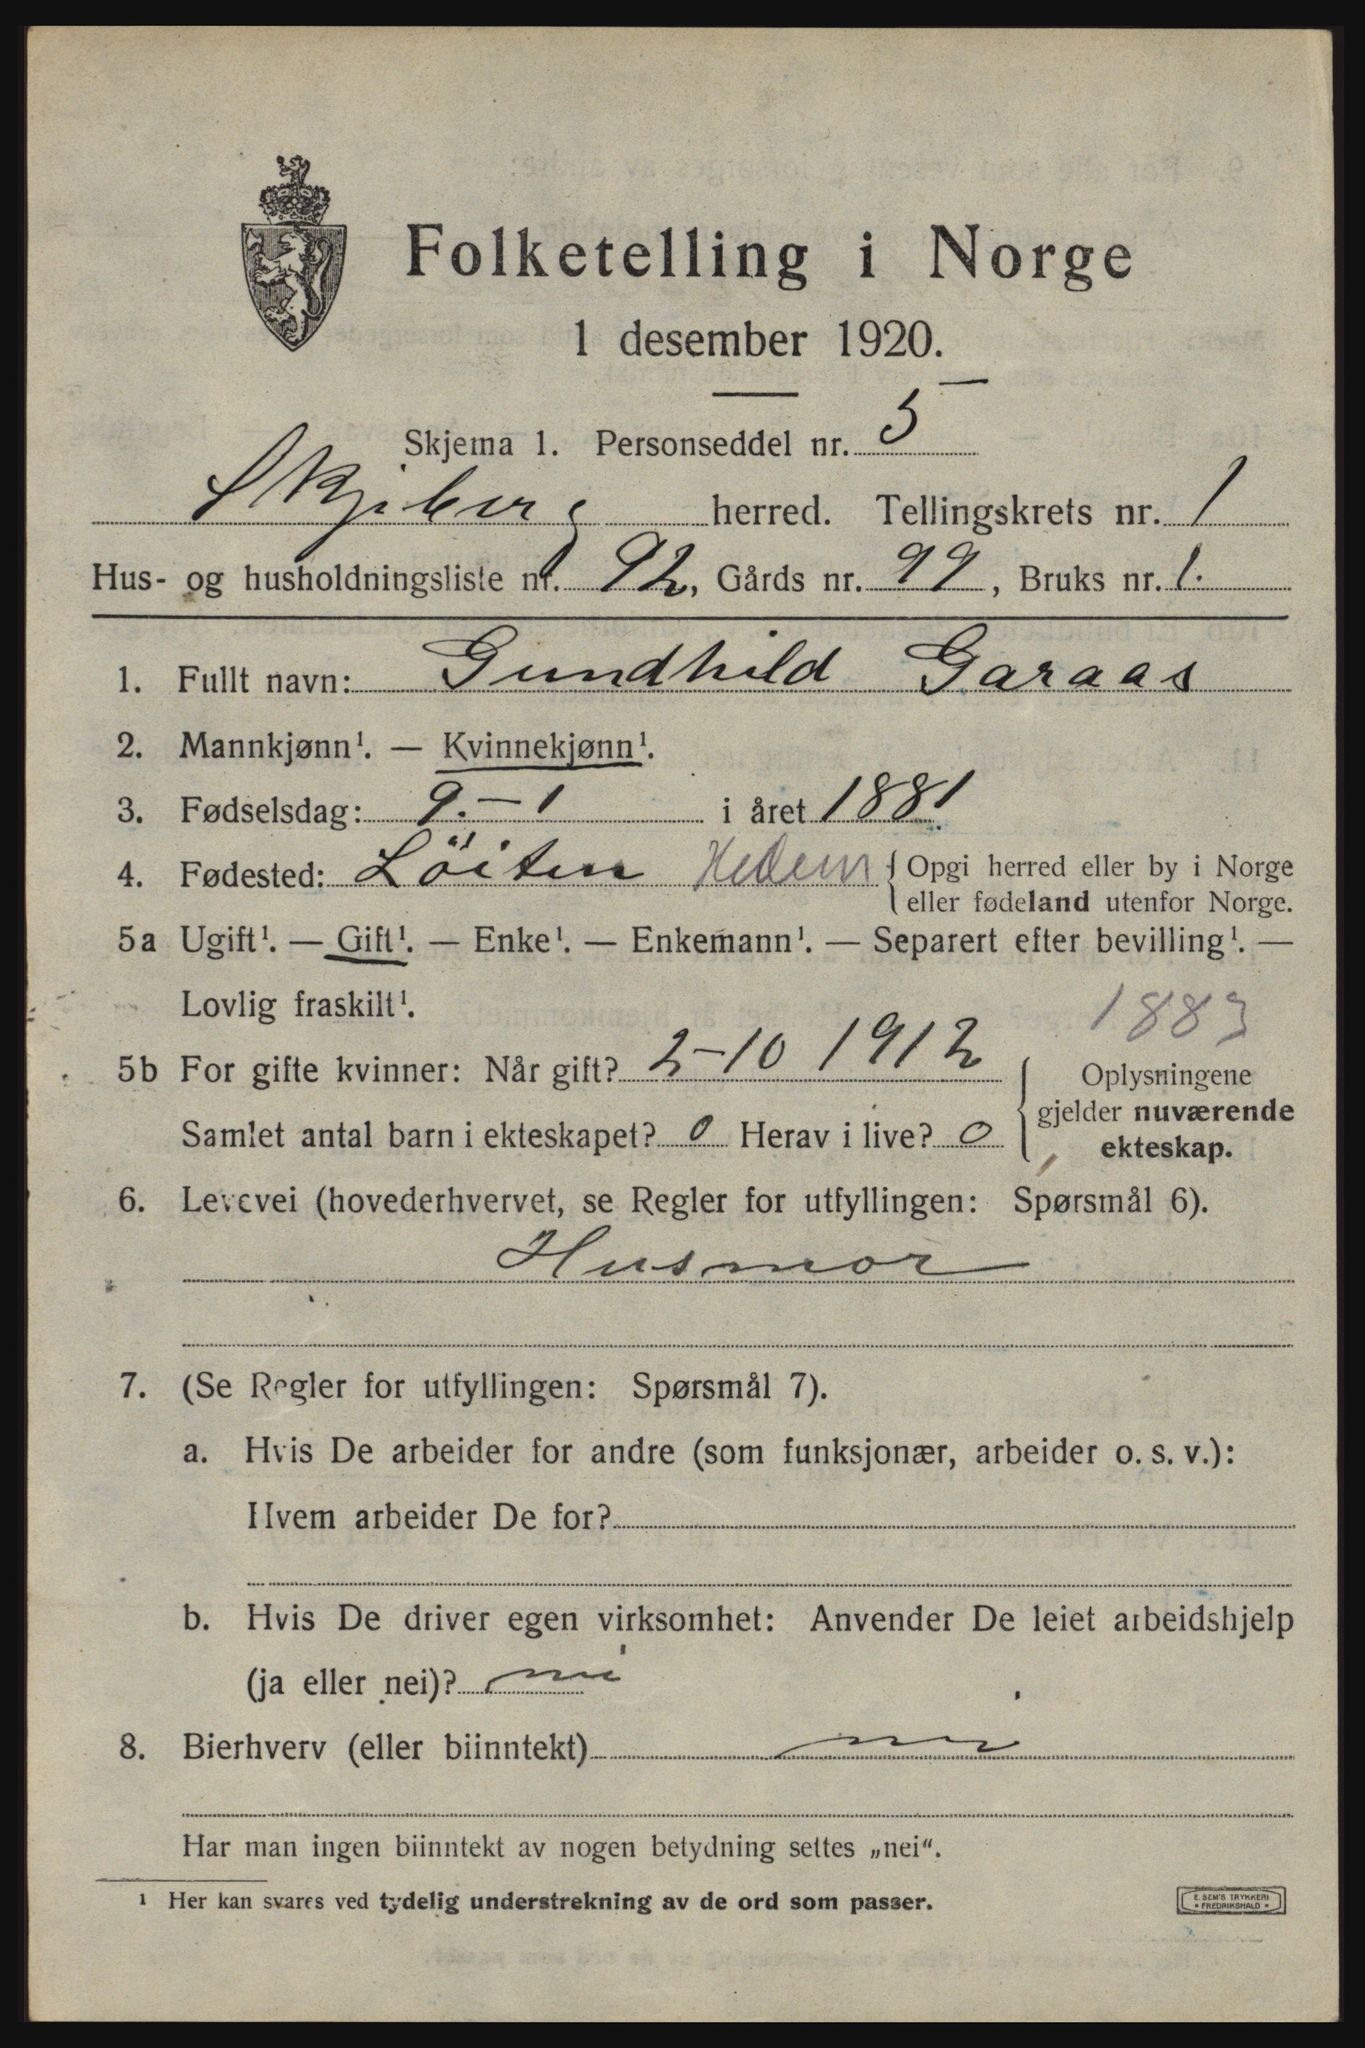 Folketelling i Norge
1 desember 1920.
Skjema 1. Personseddel nr. 5
Skjeberg herred. Tellingskrets nr. 1
Hus- og husholdningsliste nr. 92, Gårds nr. 99, Bruks nr. 1.
1. Fullt navn: Gundhild Garaas
2. Mannkjønn¹. — Kvinnekjønn¹.
3. Fødselsdag: 9.-1 i året 1881
4. Fødested: Löiten Hedem { Opgi herred eller by i Norge
eller fødeland utenfor Norge.
5a Ugift¹. — Gift¹. — Enke¹. — Enkemann¹. — Separert efter bevilling¹. —
Lovlig fraskilt¹.
1883
5b For gifte kvinner: Når gift? 2-10 1912 { Oplysningene
gjelder nuværende
Samlet antal barn i ekteskapet? 0 Herav i live? 0
ekteskap.
6. Levevei (hovederhvervet, se Regler for utfyllingen: Spørsmål 6).
Husmor
7. (Se Regler for utfyllingen: Spørsmål 7).
a. Hvis De arbeider for andre (som funksjonær, arbeider o. s. v.):
Hvem arbeider De for?
b. Hvis De driver egen virksomhet: Anvender De leiet arbeidshjelp
(ja eller nei)? nei
8. Bierhverv (eller biinntekt) nei
Har man ingen biinntekt av nogen betydning settes „nei“.
¹ Her kan svares ved tydelig understrekning av de ord som passer.
E. SEM'S TRYKKERI
* FREDRIKSHALD *